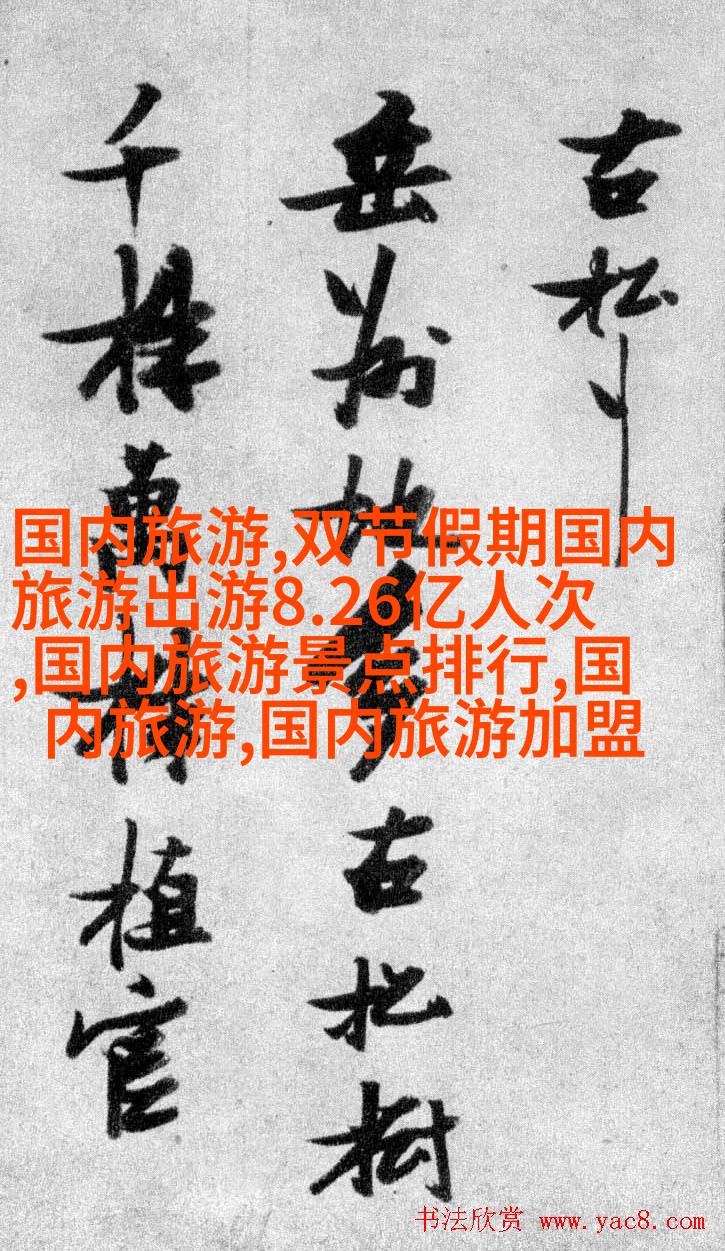 古松
岳州地多古松樹
千株萬植官
国内旅游,双节假期国内
旅游出游8.26亿人次
,国内旅游景点排行,国
内旅游,国内旅游加盟
书法欣赏 www.yac8.com